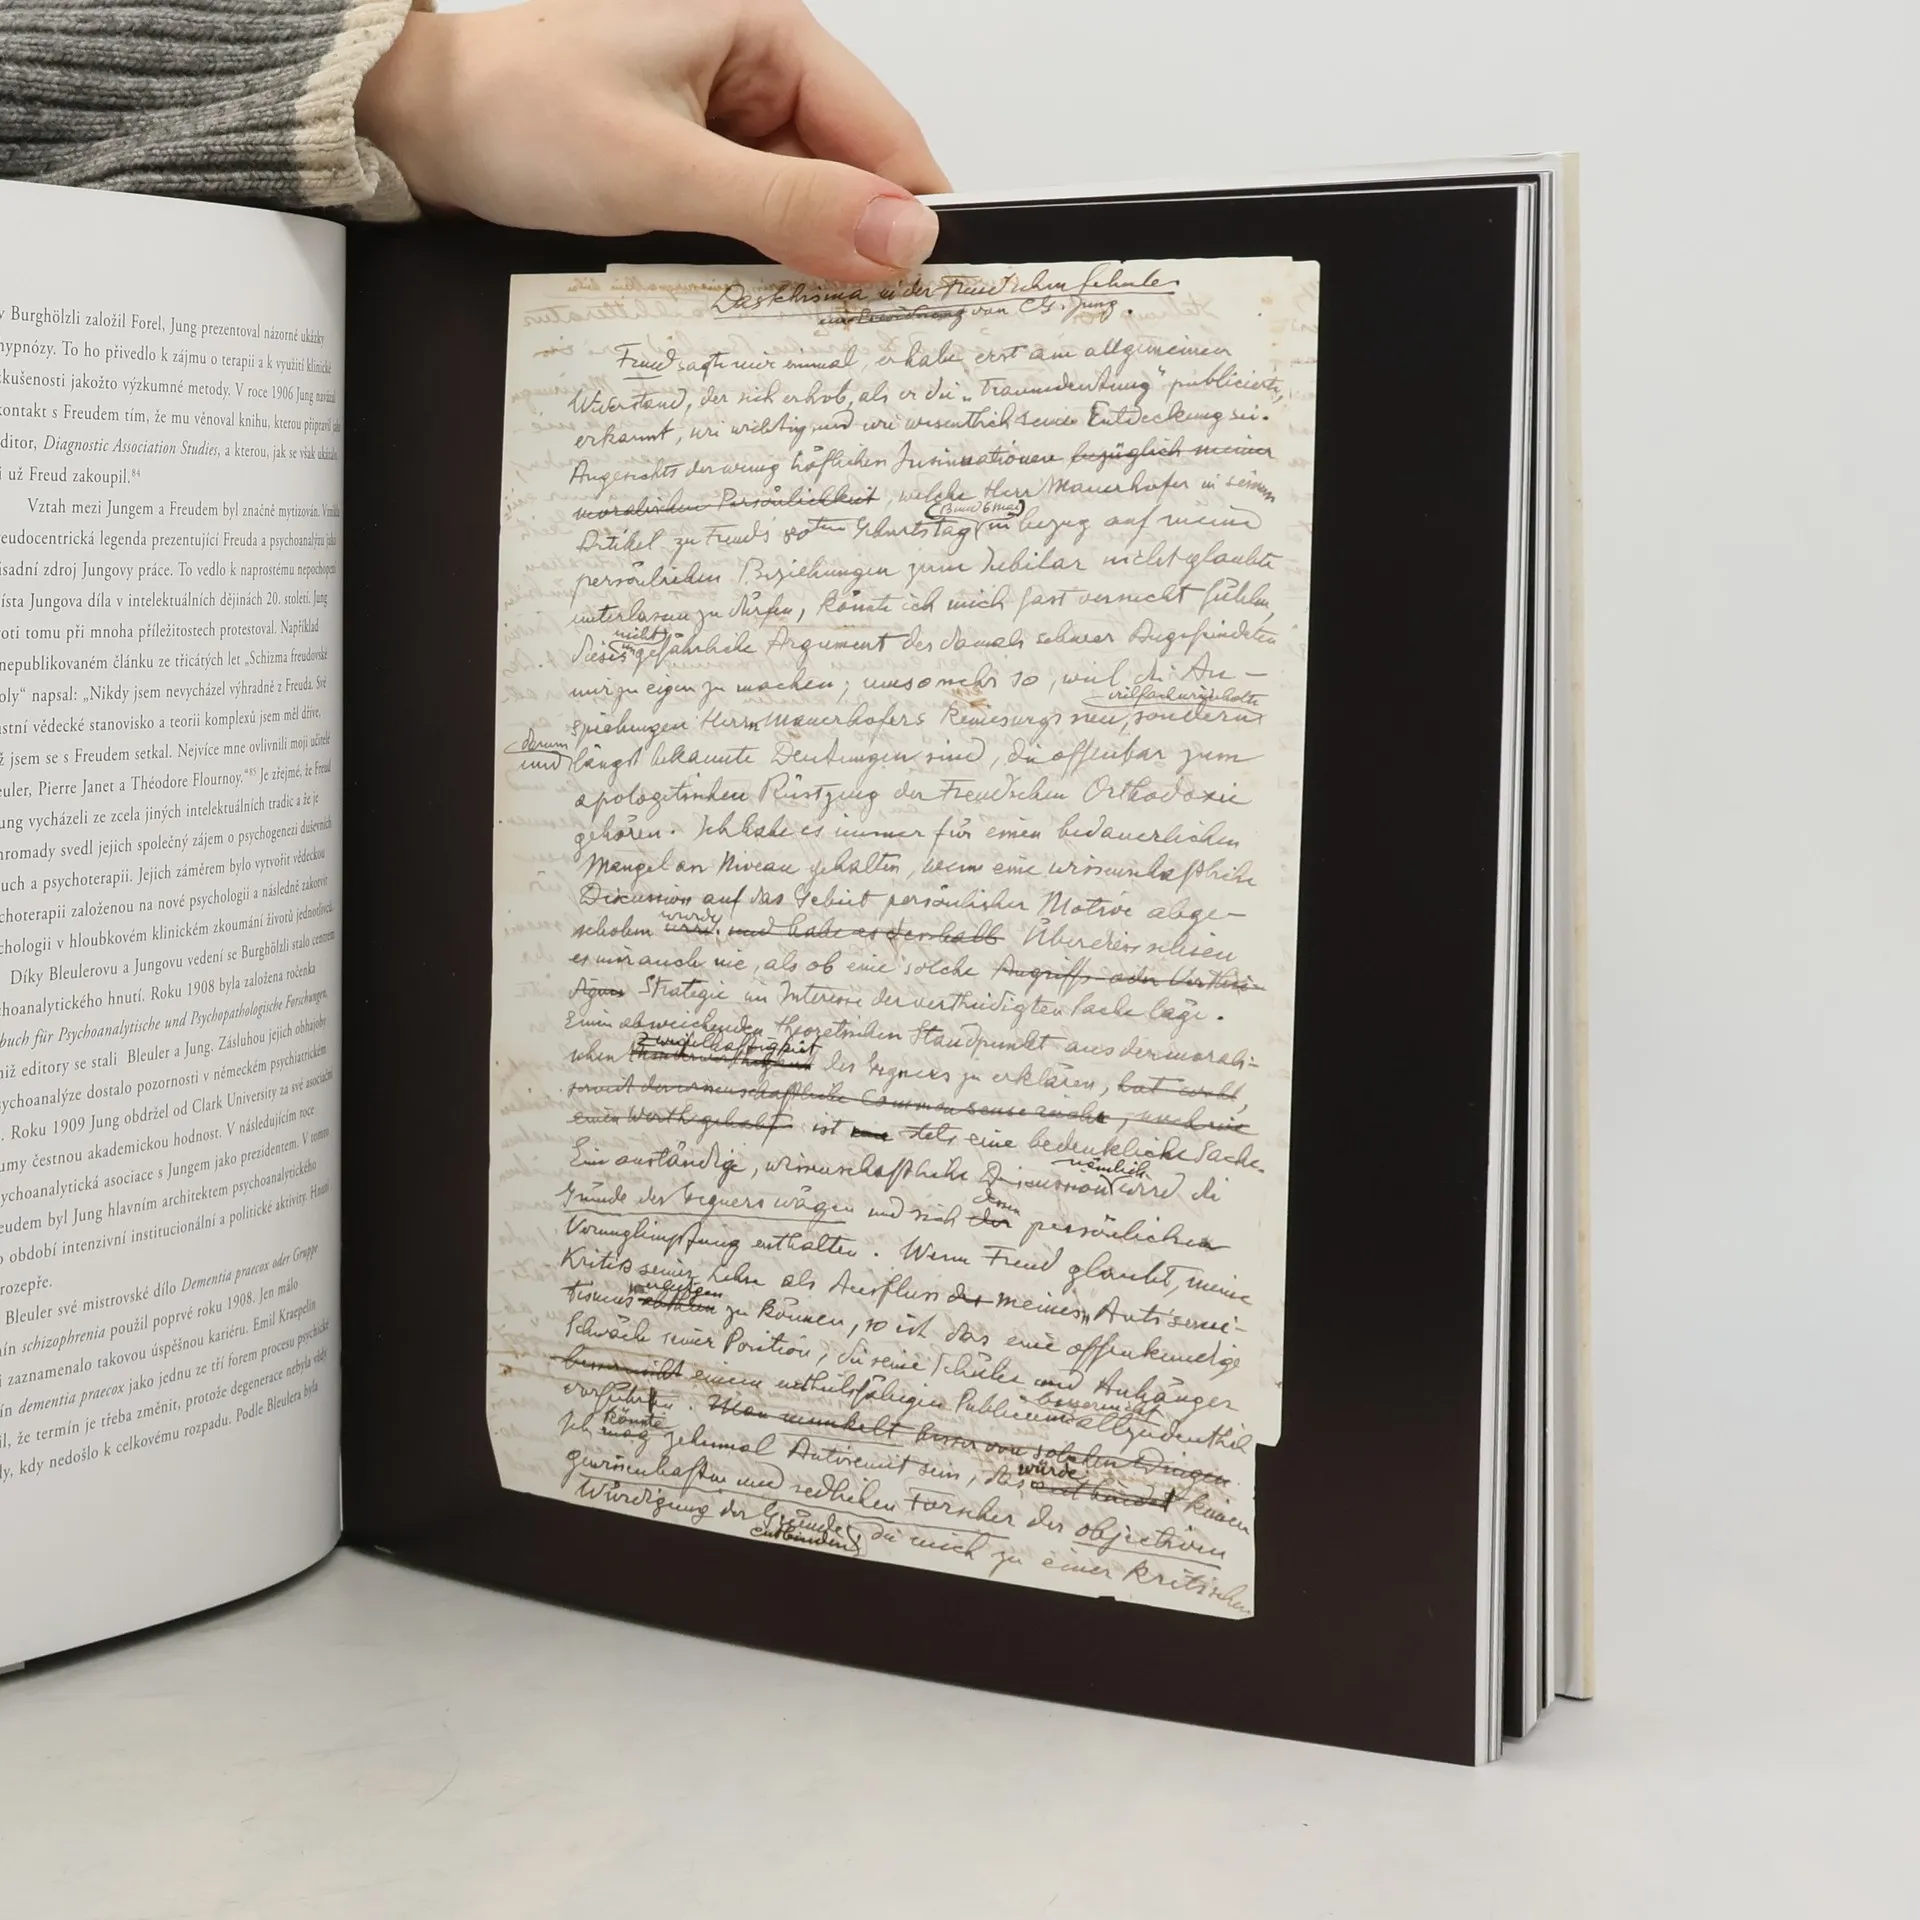 v Burghölzli založil Forel, Jung prezentoval názorné ukázky
hypnózy. To ho přivedlo k zájmu o terapii a k využití klinické
zkušenosti jakožto výzkumné metody. V roce 1906 Jung navázal
kontakt s Freudem tím, že mu věnoval knihu, kterou připravil
editor, Diagnostic Association Studies, a kterou, jak se však ukázalo,
i už Freud zakoupil.⁸⁴
Vztah mezi Jungem a Freudem byl značně mytizován.
eudocentrická legenda prezentující Freuda a psychoanalýzu jako
ásadní zdroj Jungovy práce. To vedlo k naprostému nepochopení
ísta Jungova díla v intelektuálních dějinách 20. století. Jung
roti tomu při mnoha příležitostech protestoval. Například
nepublikovaném článku ze třicátých let „Schizma freudovské
oly“ napsal: „Nikdy jsem nevycházel výhradně z Freuda. Své
astní vědecké stanovisko a teorii komplexů jsem měl dříve,
ž jsem se s Freudem setkal. Nejvíce mne ovlivnili moji učitelé
euler, Pierre Janet a Théodore Flournoy.“⁸⁵ Je zřejmé, že Freud
ung vycházeli ze zcela jiných intelektuálních tradic a že je
hromady svedl jejich společný zájem o psychogenezi duševních
uch a psychoterapii. Jejich záměrem bylo vytvořit vědeckou
choterapii založenou na nové psychologii a následně zakotvit
chologii v hloubkovém klinickém zkoumání životů jednotlivců.
Díky Bleulerovu a Jungovu vedení se Burghölzli stalo centrem
choanalytického hnutí. Roku 1908 byla založena ročenka
buch für Psychoanalytische und Psychopathologische Forschungen,
niž editory se stali Bleuler a Jung. Zásluhou jejich obhajoby
sychoanalýze dostalo pozornosti v německém psychiatrickém
. Roku 1909 Jung obdržel od Clark University za své asociační
umy čestnou akademickou hodnost. V následujícím roce
ychoanalytická asociace s Jungem jako prezidentem. V tomto
eudem byl Jung hlavním architektem psychoanalytického
o období intenzivní institucionální a politické aktivity. Hnutí
rozepře.
Bleuler své mistrovské dílo Dementia praecox oder Gruppe
ín schizophrenia použil poprvé roku 1908. Jen málo
i zaznamenalo takovou úspěšnou kariéru. Emil Kraepelin
ín dementia praecox jako jednu ze tří forem procesu psychické
il, že termín je třeba změnit, protože degenerace nebyla vždy
dy, kdy nedošlo k celkovému rozpadu. Podle Bleulera byla
Das Schisma in der Freud'schen Schule
von C. G. Jung.
Freud sagte mir einmal, er habe erst am allgemeinen
Widerstand, der sich erhob, als er die „Traumdeutung“ publicierte,
erkannt, wie wichtig und wie wesentlich seine Entdeckung sei.
Angesichts der wenig höflichen Insinuationen bezüglich meiner
moralischen Persönlichkeit, welche Herr Mauerhofer in seinem
(Bund 6 Mai)
Artikel zu Freud's 80ten Geburtstag in bezug auf meine
persönlichen Beziehungen zum Jubilar nicht glaubte
unterlassen zu dürfen, könnte ich mich fast versucht fühlen,
nicht
dieses ungefährliche Argument des damals schwer Angefeindeten
mir zu eigen zu machen; umsomehr so, weil die An-
vielfach wiederholte
spielungen Herrn Mauerhofers keineswegs neu, sondern
darum
und längst bekannte Deutungen sind, die offenbar zum
apologetischen Rüstzeug der Freudschen Orthodoxie
gehören. Ich habe es immer für einen bedauerlichen
Mangel an Niveau gehalten, wenn eine wissenschaftliche
Discussion auf das Gebiet persönlicher Motive abge-
wurde
schoben wird. und habe es deshalb Überdies schien
es mir auch nie, als ob eine solche Angriffs- oder Verthei-
digungs Strategie im Interesse der vertheidigten Sache läge.
Einen abweichenden theoretischen Standpunkt aus der morali-
zweifelhaftigkeit
schen des Gegners zu erklären, hat wohl,
soweit der wissenschaftliche Common sense reicht, noch nie
einen Werth gehabt ist stets eine bedenkliche Sache.
nämlich
Ein anständige, wissenschaftliche Discussion wird die
dessen
Gründe des Gegners wägen und sich der persönlichen
Verunglimpfung enthalten. Wenn Freud glaubt, meine
Kritik seiner Lehre als Ausfluss des meines „Antisemi-
tismus zu können, so ist das eine offenkundige
Schwäche seiner Position, die seine Schüler und Anhänger
besser nicht einem urtheilsfähigen Publicum allzudeutlich
vorführten. Man munkelt besser von solchen Dingen
könnte
Ich mag zehnmal Antisemit sein, das würde keinen
gewissenhaften und redlichen Forscher der objectiven
Würdigung der Gründe, die mich zu einer kritischen
entbinden